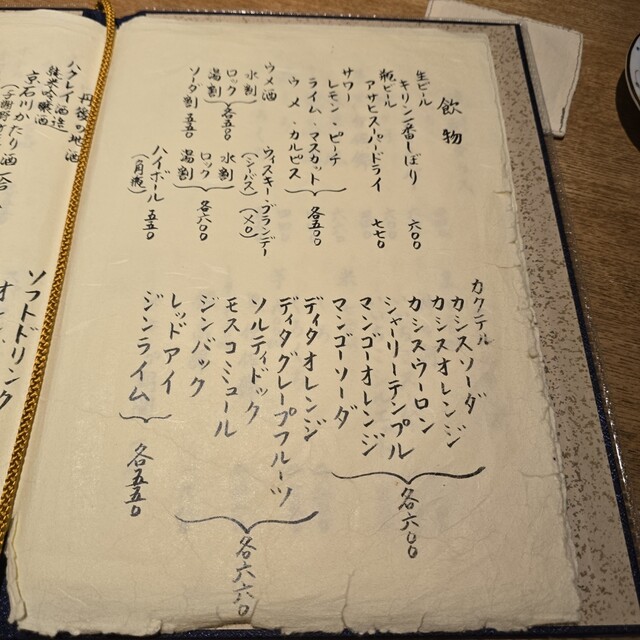 飲物
生ビール
キリン一番しぼり 六〇〇
瓶ビール
アサヒスーパードライ 七七〇
サワー
レモン・ピーチ
ライム・マスカット 各五〇〇
ウメ・カルピス
ウメ酒
水割
ロック 各五〇〇
湯割
ソーダ割 五五〇
ウィスキー・ブランデー
(シーバス) (XO)
水割
ロック 各六〇〇
湯割
ハイボール 五五〇
(角瓶)
カクテル
カシスソーダ
カシスオレンジ
カシスウーロン
シャーリーテンプル 各六〇〇
マンゴーオレンジ
マンゴーソーダ
ディタオレンジ
ディタグレープフルーツ
ソルティドック
モスコミュール 各六六〇
ジンバック
レッドアイ
ジンライム 各五五〇
丹後の地酒
ハクレイ酒造
純米吟醸酒
京石川かたり酒
ソフトドリンク